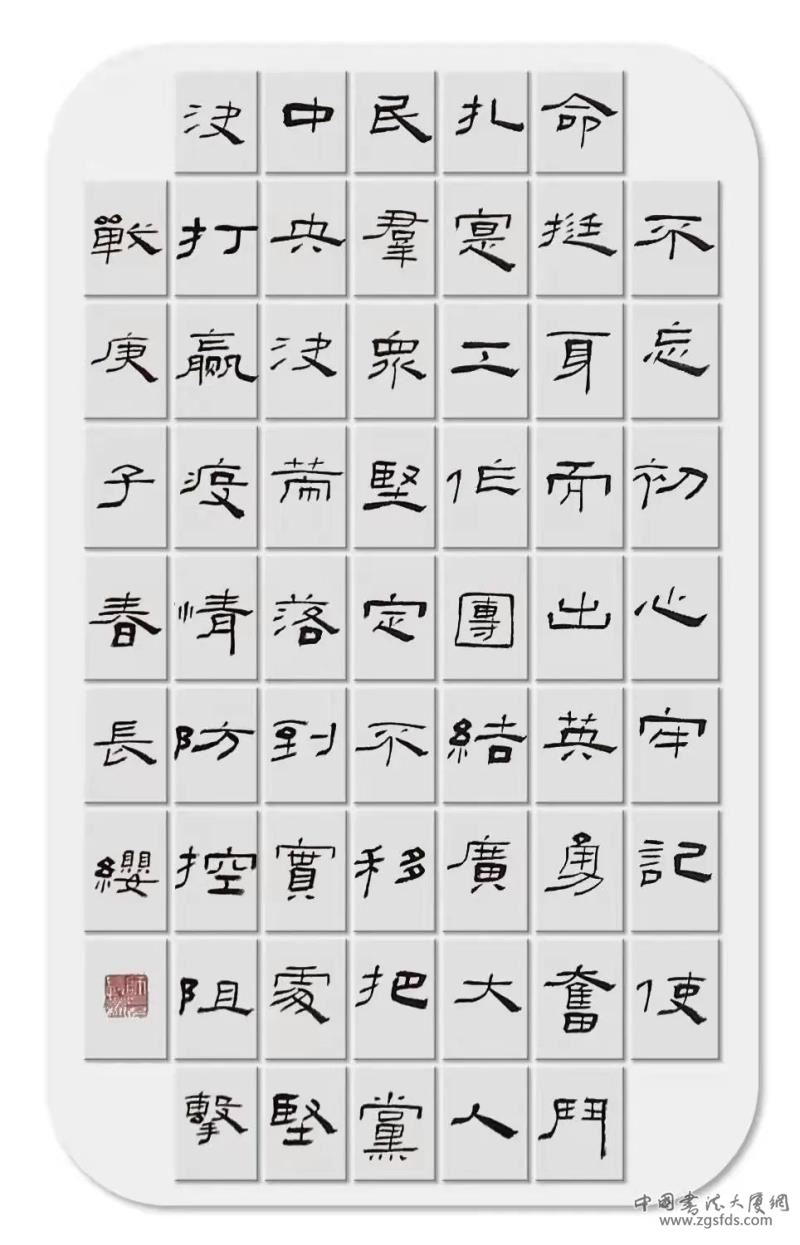 不忘初心牢記使
命挺身而出英勇奮鬥
扎寔工作團結廣大人
民羣眾堅定不移把黨
中央決策落到實處堅
決打贏疫情防控阻擊
戰庚子春長纓
中國書法大厦網
www.zgsfds.com